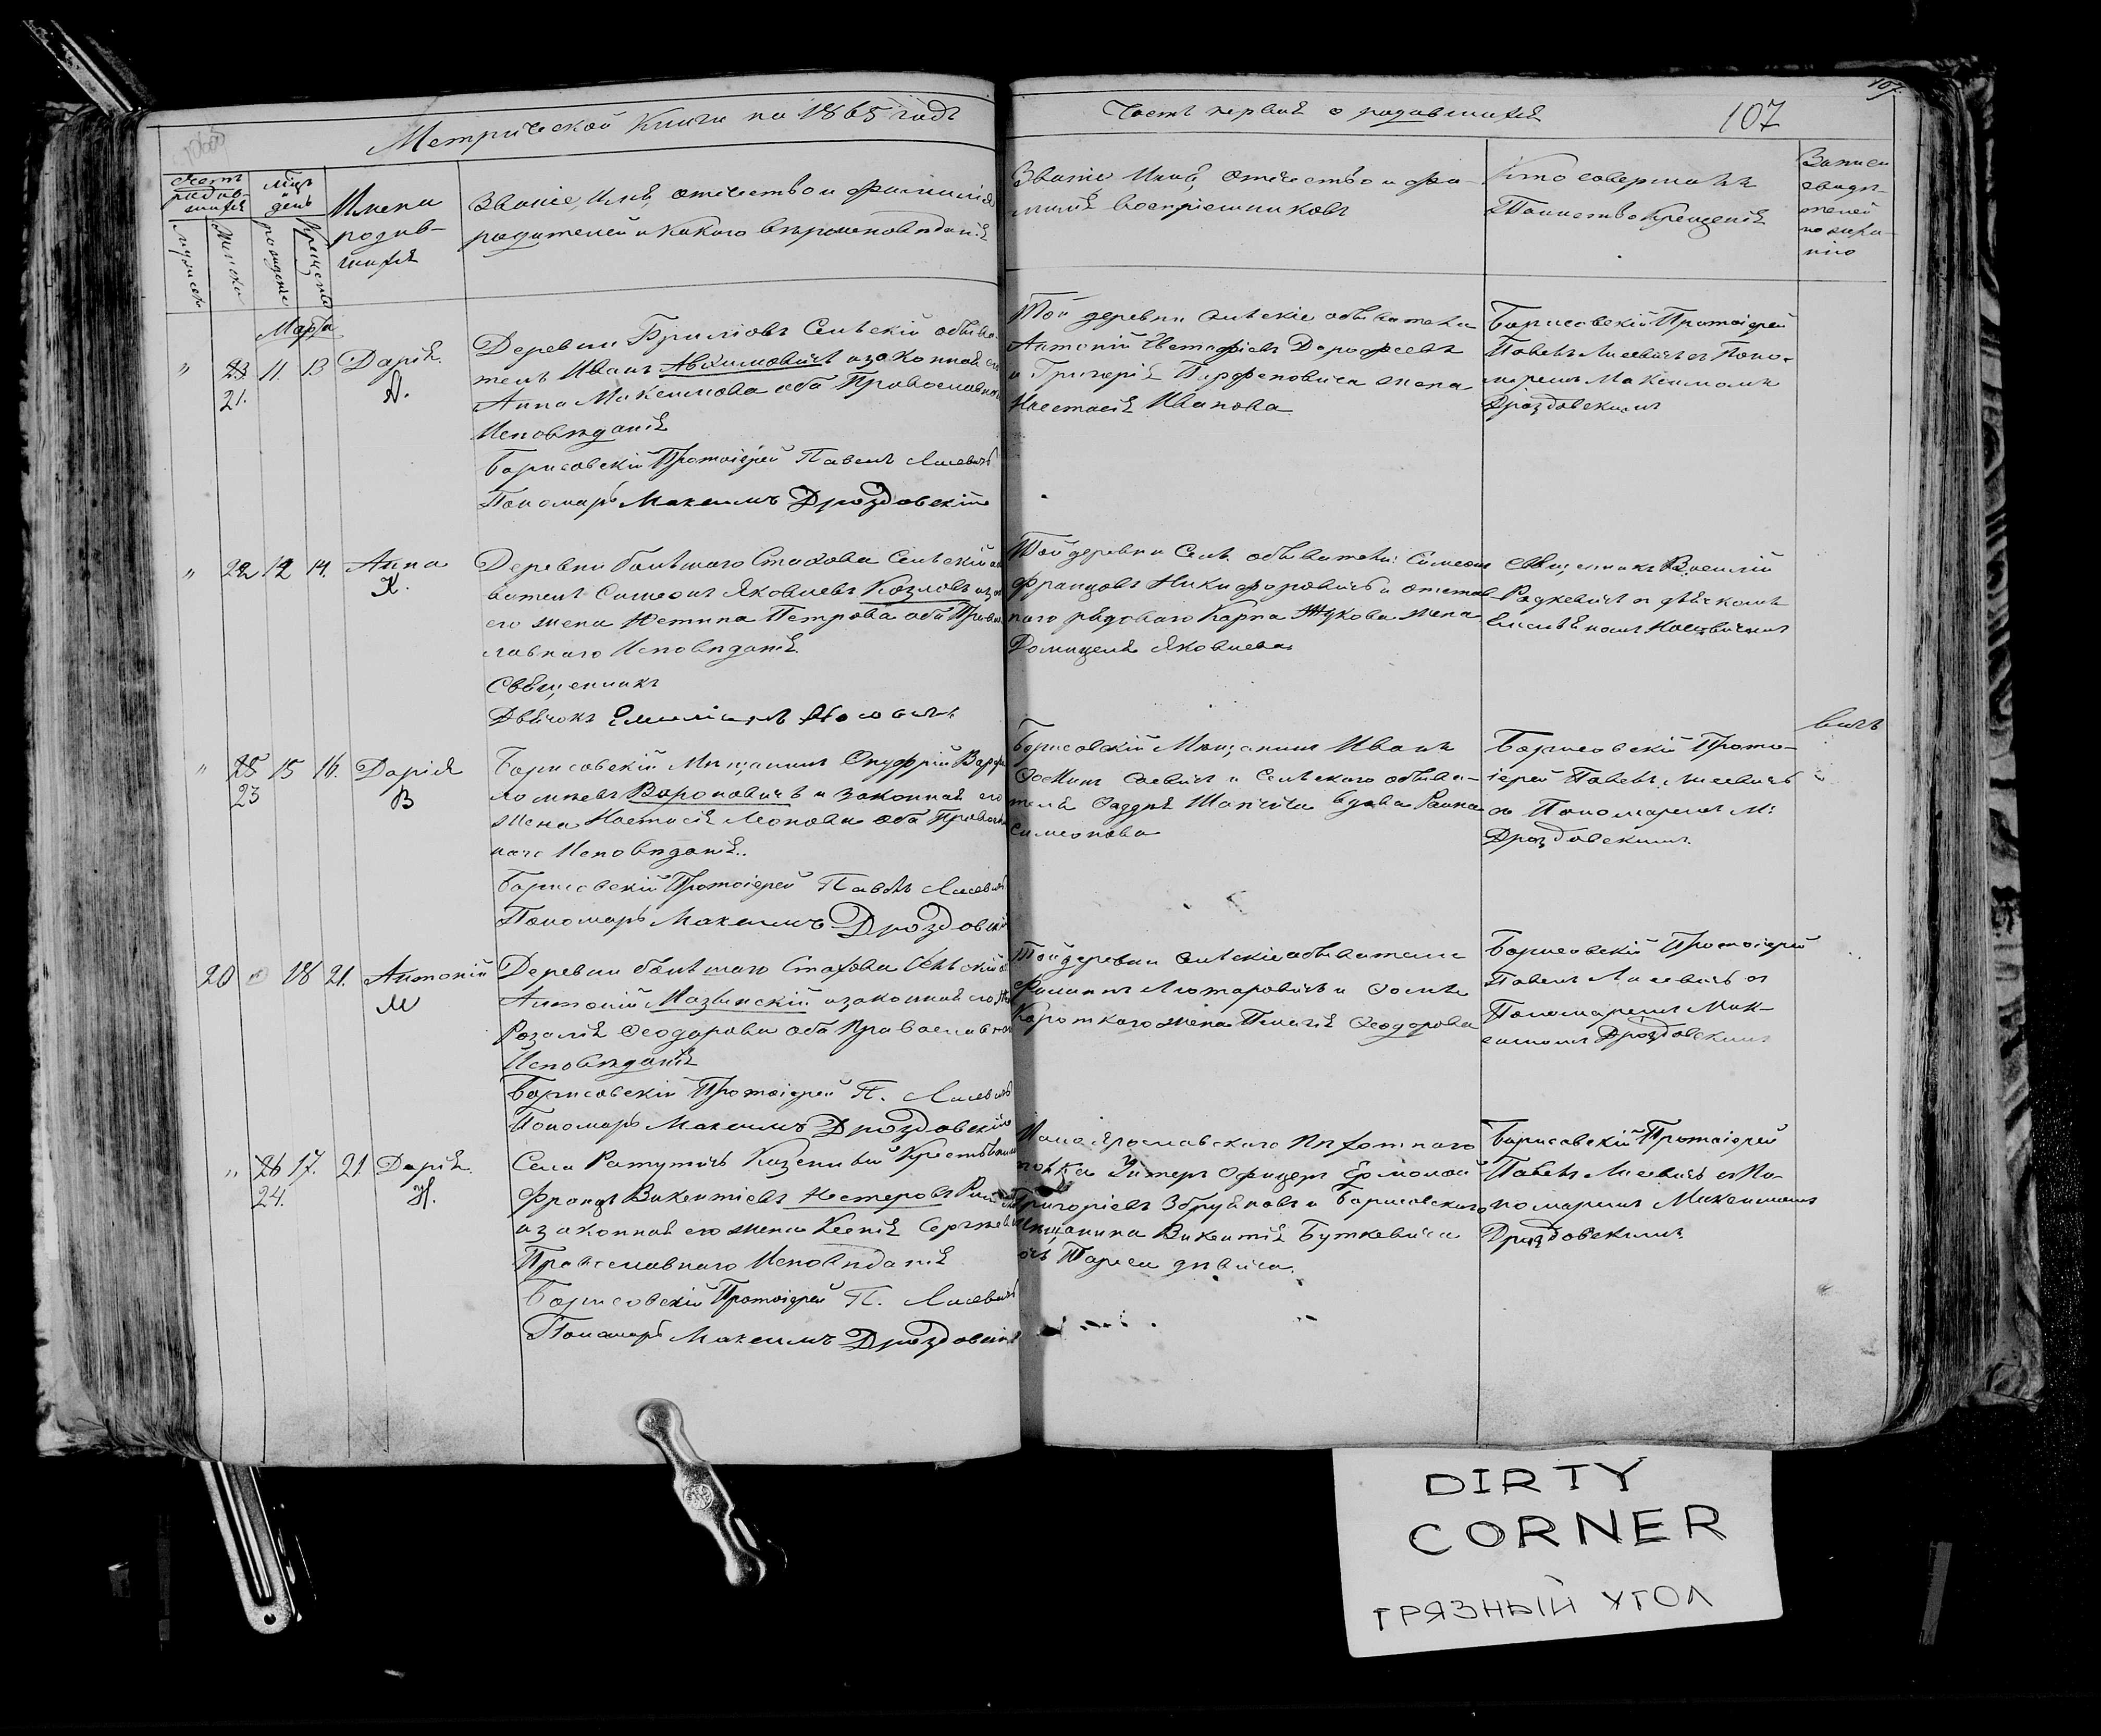 Метрической Книги на 1865 годъ
Часть первая о родившихся
107
107.
Счетъ родив-шихся
Мужеска
Женска
Мѣц. и день
рожденіе
крещеніе
Имена
родив-
шихся
Званіе, Имя, отчество и фамилія
родителей и какого вѣроисповѣданія
Званіе Имя, отчество и фа-
милія воспріемниковъ
Кто совершалъ
Таинство Крещенія
Марта
" 23. 21. 11. 13 Дарія.
А.
Деревни Брилiовъ Сельскій обыва-
тель Иванъ Авхимовичъ и законная его
Анна Максимова оба Православнаго
Исповѣданія
Борисовскій Протоіерей Павелъ Лисевичъ
Пономарь Максимъ Дроздовскій
Той деревни сельскіе обыватели
Антоній Дорофеевъ
и Григорія Парфеновича жена
Настасія Иванова
Борисовскій Протоіерей
Павелъ Лисевичъ съ Поно-
маремъ Максимомъ
Дроздовскимъ
" 22 12 14. Анна
К.
Деревни большаго Стахова Сельскій об
ватель Симеонъ Яковлевъ Козловъ и зак
его жена Устина Петрова оба Правос
лавнаго Исповѣданія
Священникъ
Дьячокъ Емиліанъ
Той деревни Сель. обыватели: Симеонъ
Францовъ Никифоровичъ и отстав-
наго рядоваго Карпа Жукова жена
Домицеля Яковлева
Священникъ Василій
Радкевичъ съ дьячкомъ
вичъ
" 25 23 15 16. Дарія
В
Борисовскій Мѣщанинъ Онуфрій Варфо
ломѣевъ Вороновичъ и законная его
жена Настасія Леонова оба Православ
наго Исповѣданія.
Борисовскій Протоіерей Павелъ Лисевичъ
Пономарь Максимъ Дроздовскій
Борисовскій Мѣщанинъ Иванъ
и Сельскаго обыва-
теля Фаддея вдова
Симеонова
Борисовскій Прото-
іерей Павелъ Лисевичъ
съ Пономаремъ М:
Дроздовскимъ.
20 18 21. Антоній
М
Деревни большаго Стахова Сельскій об
Антоній Мазынскій и законная его жена
Розалія Феодорова оба Православнаго
Исповѣданія
Борисовскій Протоіерей П. Лисевичъ
Пономарь Максимъ Дроздовскій
Той деревни сельскіе обыватели
и Фомы
Короткаго жена Пелагія Феодорова
Борисовскій Протоіерей
Павелъ Лисевичъ съ
Пономаремъ Мак-
симомъ Дроздовскимъ
" 26 24. 17. 21 Дарія.
Н.
Села Ратутичъ Казенный Крестьянинъ
Францъ Викентіевъ Нестеровъ
и законная его жена Ксенія Сергѣева
Православнаго Исповѣданія
Борисовскій Протоіерей П. Лисевичъ
Пономарь Максимъ Дроздовскій
Ярославскаго Пѣхотнаго
полка Унтеръ Офицеръ Ермолай
Григоріевъ и Борисовскаго
Мѣщанина Викентія Буткевича
дочь дѣвица.
Борисовскій Протоіерей
Павелъ Лисевичъ съ По-
номаремъ Максимомъ
Дроздовскимъ
DIRTY
CORNER
ГРЯЗНЫЙ УГОЛ